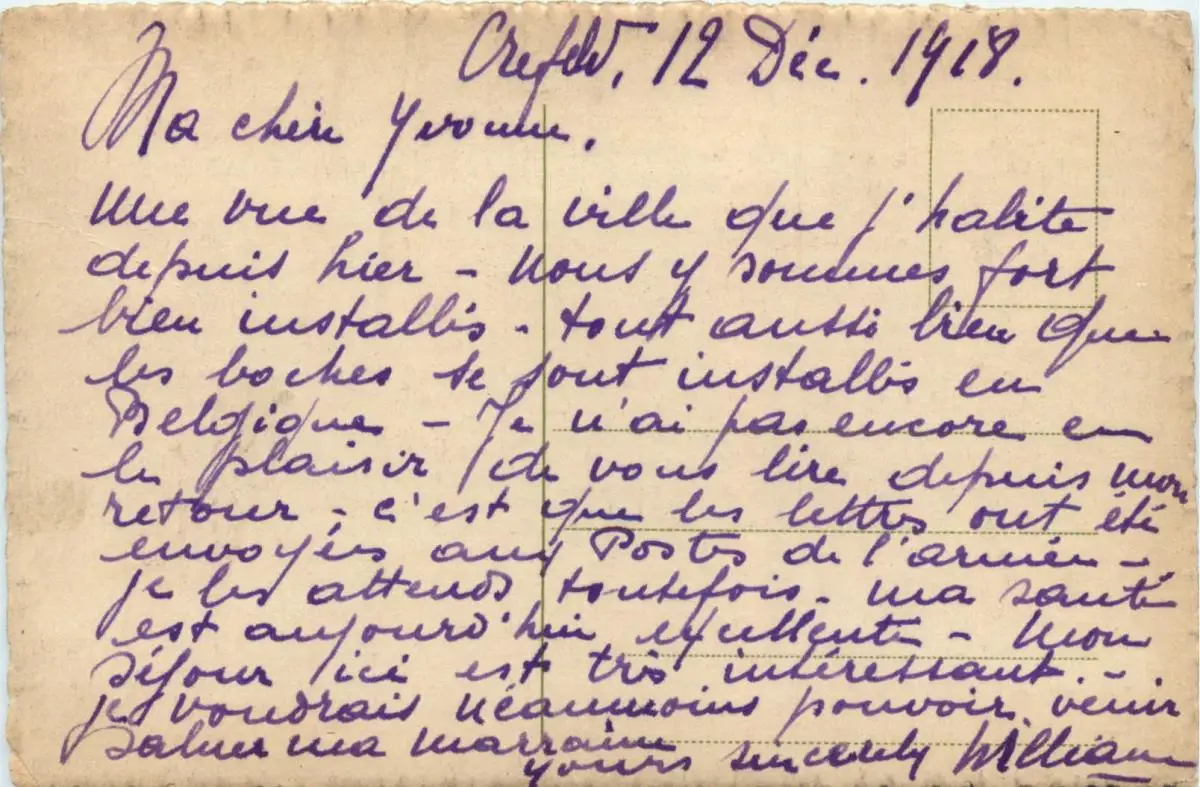 Crefeld, 12 Déc. 1918.
Ma chère Yvonne,
Une vue de la ville que j'habite
depuis hier - Nous y sommes fort
bien installés - tout aussi bien que
les boches se sont installés en
Belgique - Je n'ai pas encore eu
le plaisir de vous lire depuis mon
retour, c'est que les lettres ont été
envoyées aux Postes de l'armée -
je les attends toutefois - ma santé
est aujourd'hui excellente - Mon
séjour ici est très intéressant. -
je voudrais néanmoins pouvoir venir
saluer ma marraine
yours sincerely William